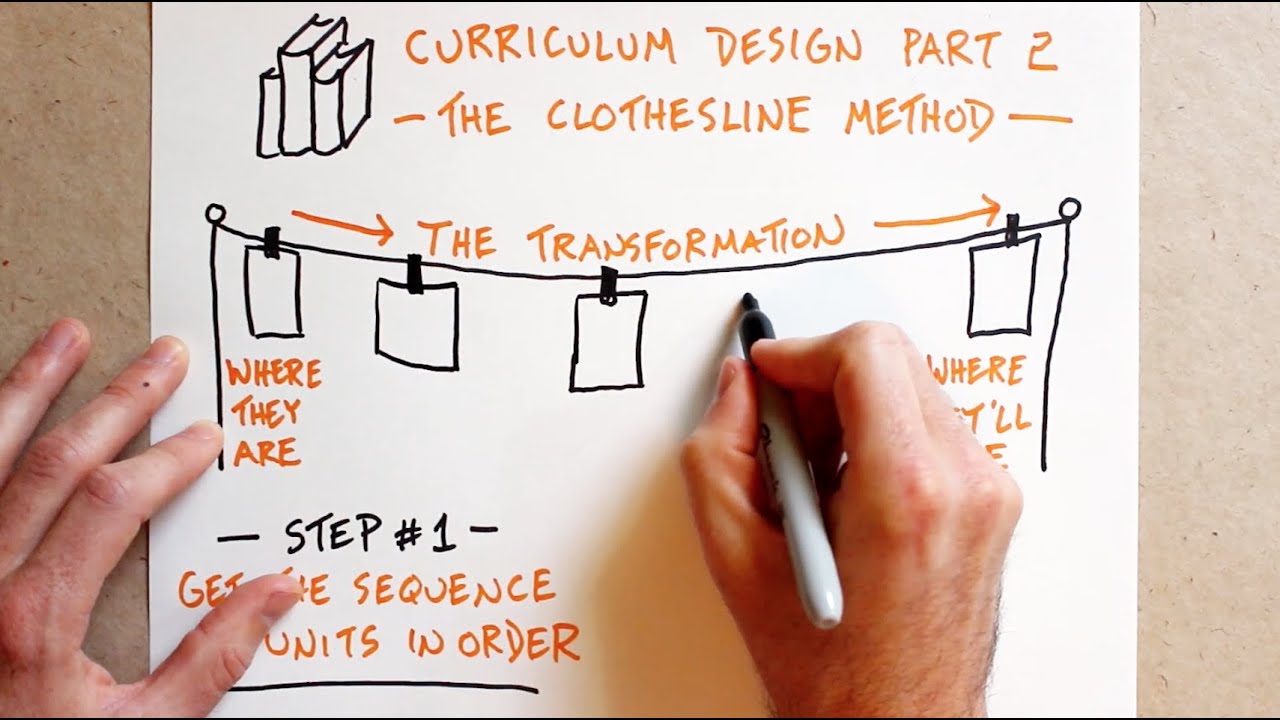 CURRICULUM DESIGN PART 2
- THE CLOTHESLINE METHOD -
THE TRANSFORMATION
WHERE
THEY
ARE
WHERE
- STEP #1 -
SEQUENCE
UNITS IN ORDER